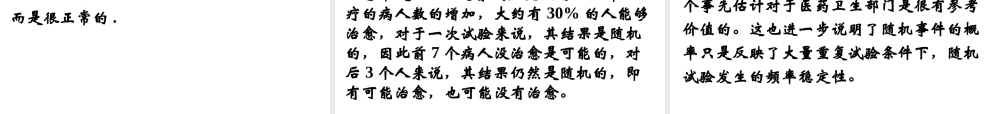 而是很正常的.
疗的病人数的增加，大约有 30% 的人能够
治愈，对于一次试验来说，其结果是随机
的，因此前 7 个病人没治愈是可能的，对
后 3 个人来说，其结果仍然是随机的，即
有可能治愈，也可能没有治愈。
个事先估计对于医药卫生部门是很有参考
价值的。这也进一步说明了随机事件的概
率只是反映了大量重复试验条件下，随机
试验发生的频率稳定性。